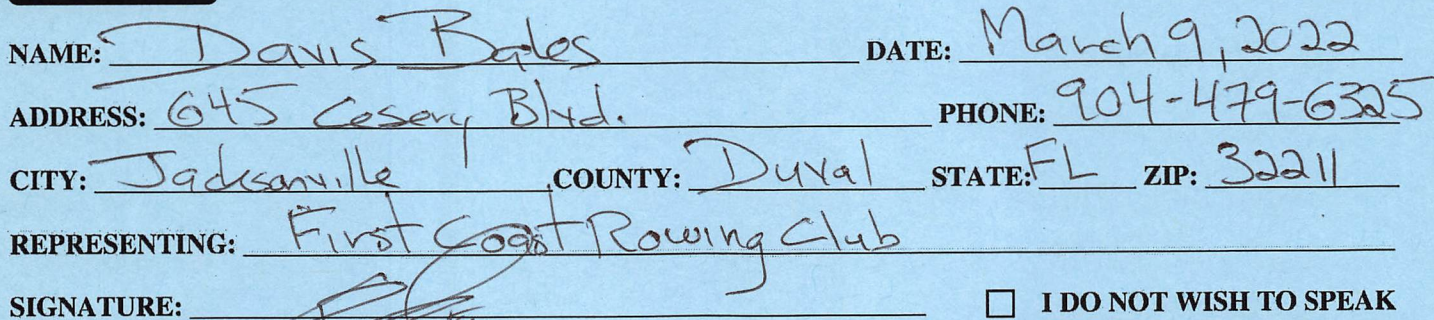 NAME: Davis Bales DATE: March 9, 2022
ADDRESS: 645 Cesery Blvd. PHONE: 904-479-6325
CITY: Jacksonville COUNTY: Duval STATE: FL ZIP: 32211
REPRESENTING: First Coast Rowing Club
SIGNATURE: ☐ I DO NOT WISH TO SPEAK